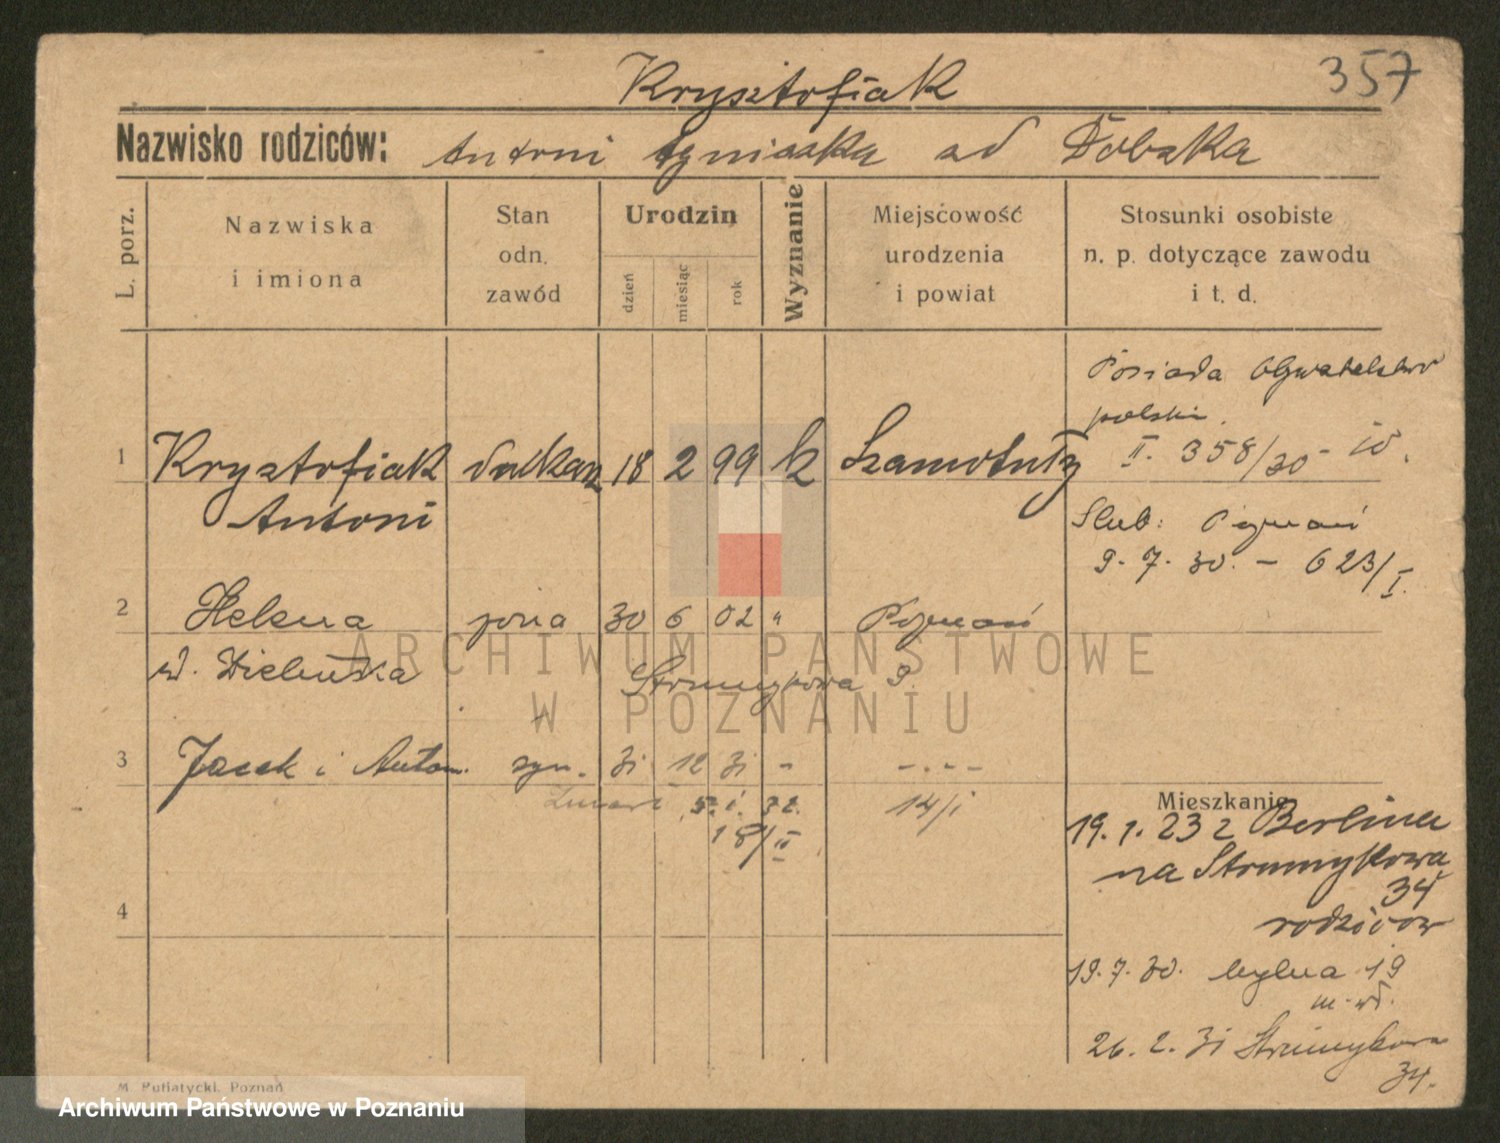 357
Krysztofiak
Nazwisko rodziców: Antoni Agnieszka od Dobska
L. porz.
Nazwiska
i imiona
Stan
odn.
zawód
Urodzin
dzień
miesiąc
rok
Wyznanie
Miejscowość
urodzenia
i powiat
Stosunki osobiste
n. p. dotyczące zawodu
i t. d.
Posiada Obywatelstwo
polskie.
II. 358/30 -
1 Krysztofiak 18 2 99 k Szamotuły
Antoni
Ślub: Poznań
9. 7. 30. - 623/I.
2 Helena żona 30 6 02 " Poznań
Strumykowa 9
3 Jacek i Anton. syn. 31 12 31 - -.--
Zmarł 5. 1. 32. 14/I
18/II
Mieszkanie
19. 1. 23 z Berlina
na Strumykowa
34
rodziców
4
19. 7. 30. 19
26. 2. 31 Strumykowa
34.
M. Putiatycki, Poznań
ARCHIWUM PAŃSTWOWE
W POZNANIU
Archiwum Państwowe w Poznaniu